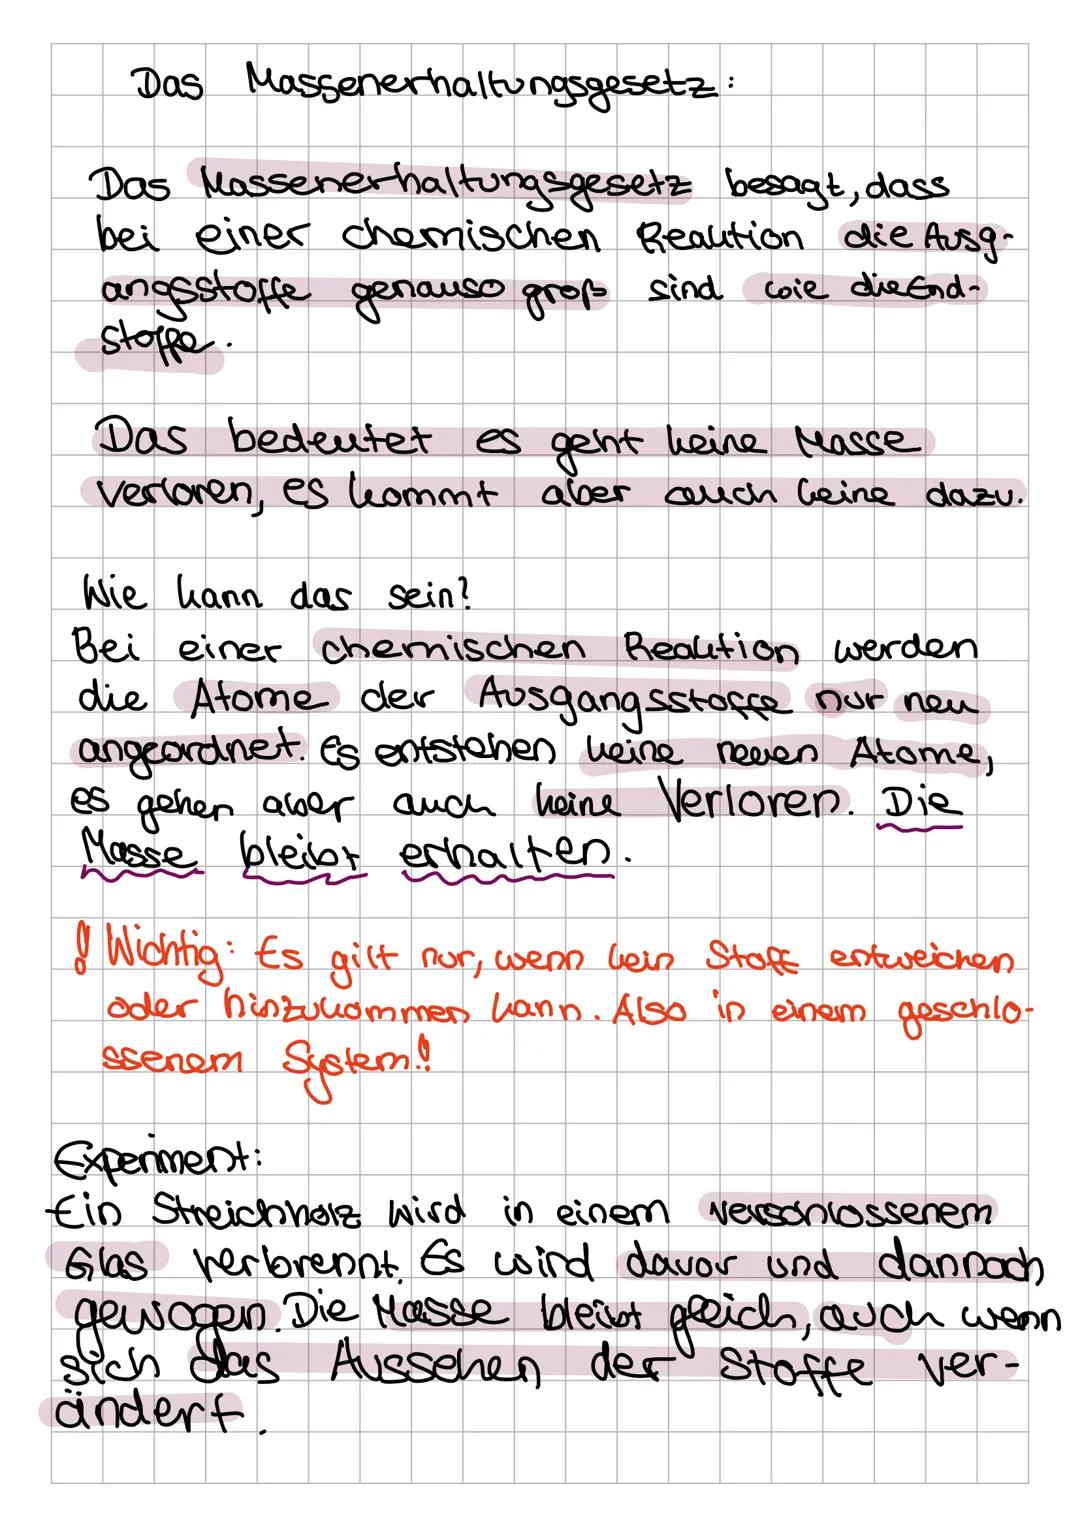 Das Massenerhaltungsgesetz:
Das Massenerhaltungsgesetz besagt, dass
bei einer chemischen Reaktion die Ausg-
angsstoffe genauso groß sind wie die End-
stoffe.
Das bedeutet es geht keine Masse
verloren, es kommt aber auch keine dazu.
Wie kann das sein?
Bei einer chemischen Reaktion werden
die Atome der Ausgangsstoffe nur neu
angeordnet. Es entstehen keine neuen Atome,
es gehen aber auch keine Verloren. Die
Masse bleibt erhalten.
! Wichtig: Es gilt nur, wenn kein Stoff entweichen
oder hinzukommen kann. Also in einem geschlo-
ssenem System!!
Experiment:
Ein Streichholz wird in einem verschlossenem
Glas verbrennt. Es wird davor und dannach
gewogen. Die Masse bleibt gleich, auch wenn
sich das Aussehen der Stoffe ver-
ändert.